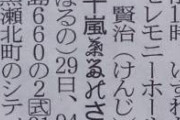 1時、いずれ
セレモニーホー
賢治(けんじ
十嵐
はるの)29日、94
島660の2 式31
黒瀬北町のシテ